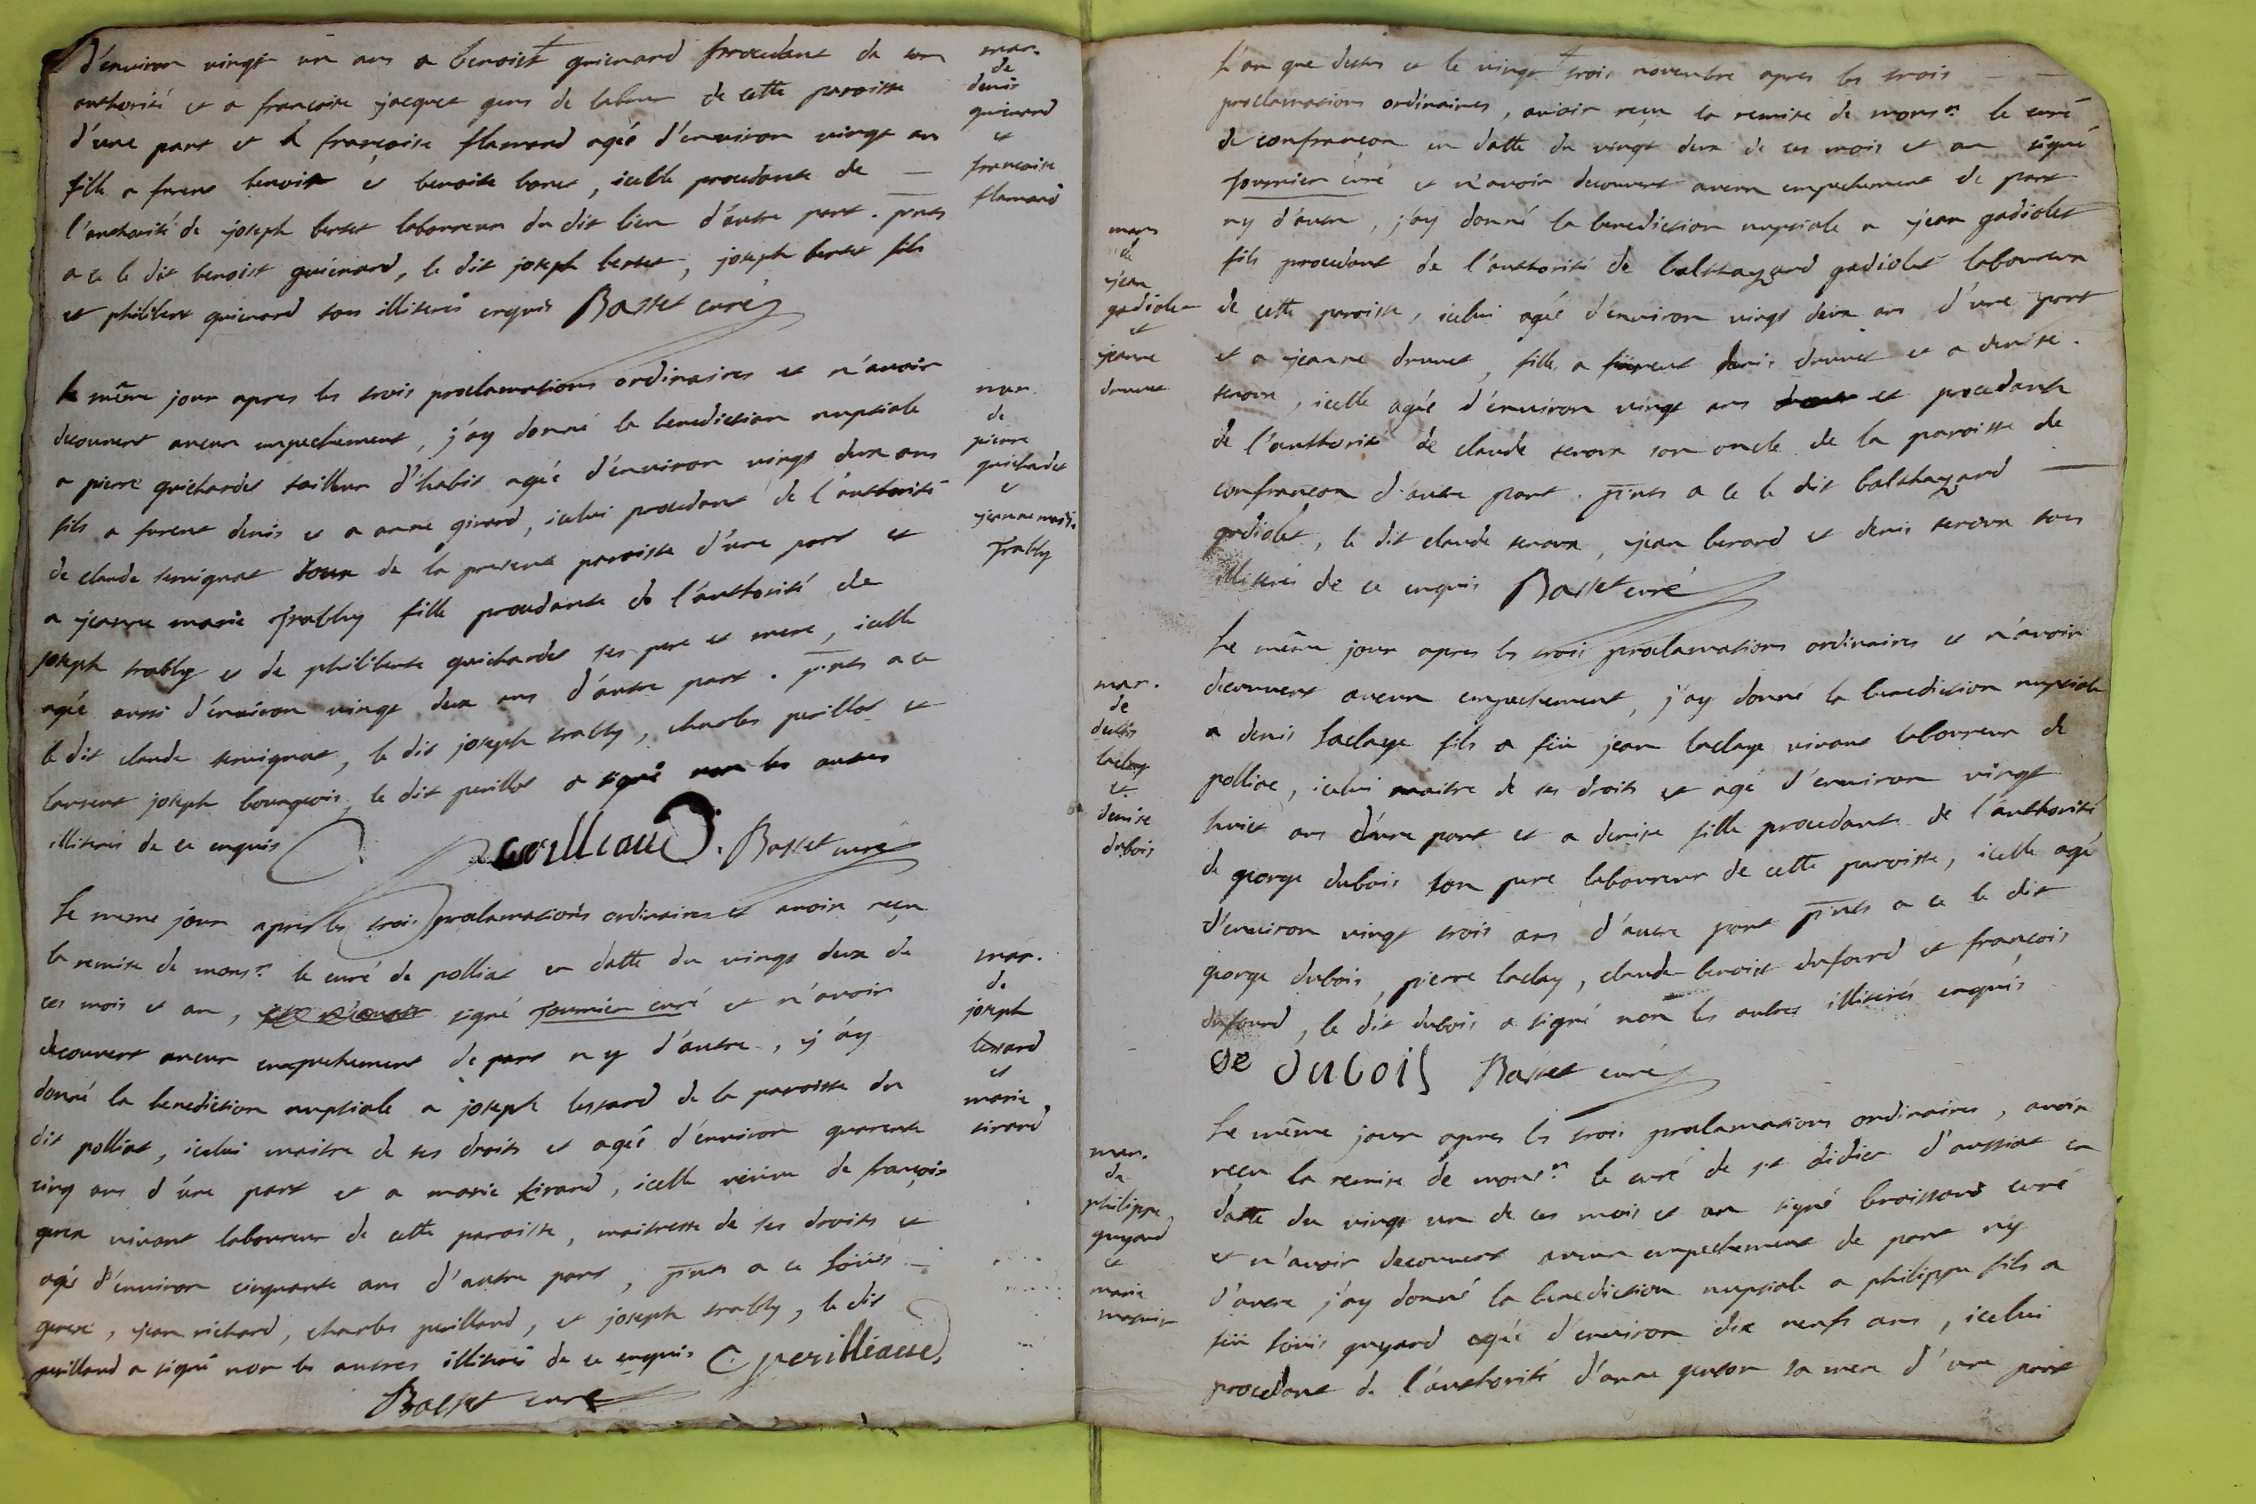 d'environ vingt un ans a benoist guienard procedant de son
authorité et a françoise jacquet gens de labeur de cette paroisse
d'une part et a françoise flamand agée d'environ vingt an
fille a furent benoist et benoite boret, icelle procedante de —
l'authorité de joseph bertet laboureur du dit lieu d'autre part. pnts
a ce le dit benoist guienard, le dit joseph bertet, joseph bertet fils
et philibert guienard tous illiterés enquis Basset curé
mar.
de
denis
guienard
et
francoise
flamand
le même jour apres les trois proclamations ordinaires et n'avoir
decouvert aucun empechement, j'ay donné la benediction nuptiale
a pierre guichardet tailleur d'habit agée d'environ vingt deux ans
fils a furent denis et a anne girard, icelui procedant de l'authorité
de claude semignat de la presente paroisse d'une part et
a jeanne marie Trably fille procedante de l'authorité de
joseph trably et de philiberte guichardet ses pere et mere, icelle
agée aussi d'environ vingt deux ans d'autre part. pnts a ce
le dit claude semignat, le dit joseph trably, charles perillat et
laurent joseph bourgeois, le dit perillat a signé non les autres
illiterés de ce enquis Basset curé
mar.
de
pierre
guichardet
et
jeanne marie
Trably
Le meme jour apres les trois proclamations ordinaires et avoir reçu
la remise de monsr. le curé de polliat en datte du vingt deux de
ces mois et an, signé fournier curé et n'avoir
decouvert aucun empechement de part n y d'autre, j'ay
donné la benediction nuptiale a joseph lessard de la paroisse du
dit polliat, icelui maitre de ses droits et agée d'environ quarente
cinq ans d'une part et a marie tirand, icelle veuve de françois
vivant laboureur de cette paroisse, maitresse de ses droits et
agée d'environ cinquante ans d'autre part, pnts a ce Loüis —
jean richard, charles perilland, et joseph trably, le dit
perilland a signé non les autres illiterés de ce enquis C perilliaud
Basset curé
mar.
de
joseph
lessard
et
marie
tirand
L'an que dessus et le vingt trois novembre apres les trois — —
proclamations ordinaires, avoir reçu la remise de monsr. le curé
de confrançon en datte du vingt deux de ces mois et an signé
fournier curé et n'avoir decouvert aucun empechement de part
ny d'autre, j'ay donné la benediction nuptiale a jean gadiolet
fils procedant de l'authorité de balthazard gadiolet laboureur
de cette paroisse, icelui agée d'environ vingt deux ans d'une part
et a jeanne drunet, fille a furent denis drunet et a denise.
, icelle agée d'environ vingt ans et procedante
de l'authorité de claude son oncle de la paroisse de
confrancon d'autre part. pnts a ce le dit balthazard —
gadiolet, le dit claude , jean berard et denis tous
illiterés de ce enquis Basset curé
mar.
de
jean
gadiolet
et
jeanne
drunet
Le même jour apres les trois proclamations ordinaires et n'avoir
decouvert aucun empechement, j'ay donné la benediction nuptiale
a denis Laclaye fils a füe jean laclaye vivant laboureur de
polliat, icelui maitre de ses droits et agé d'environ vingt
huict ans d'une part et a denise fille procedante de l'authorité
de george dubois son pere laboureur de cette paroisse, icelle agé
d'environ vingt trois ans d'autre part pnts a ce le dit
george dubois, pierre laclay, claude benoist dufourd et françois
dufourd, le dit dubois a signé non les autres illiterés enquis
Ge DuboiS Basset curé
mar.
de
denis
laclay
et
denise
dubois
Le même jour apres les trois proclamations ordinaires, avoir
reçu la remise de monsr. le curé de st didier d'aussiat en
datte du vingt un de ces mois et an signé broissand curé
et n'avoir decouvert aucun empechement de part ny
d'autre j'ay donné la benediction nuptiale a philippe fils a
füe Loüis guyard agée d'environ dix neufs ans, icelui
procedant de l'authorité d'anne sa mere d'une part
mar.
de
philippe
guyard
et
marie